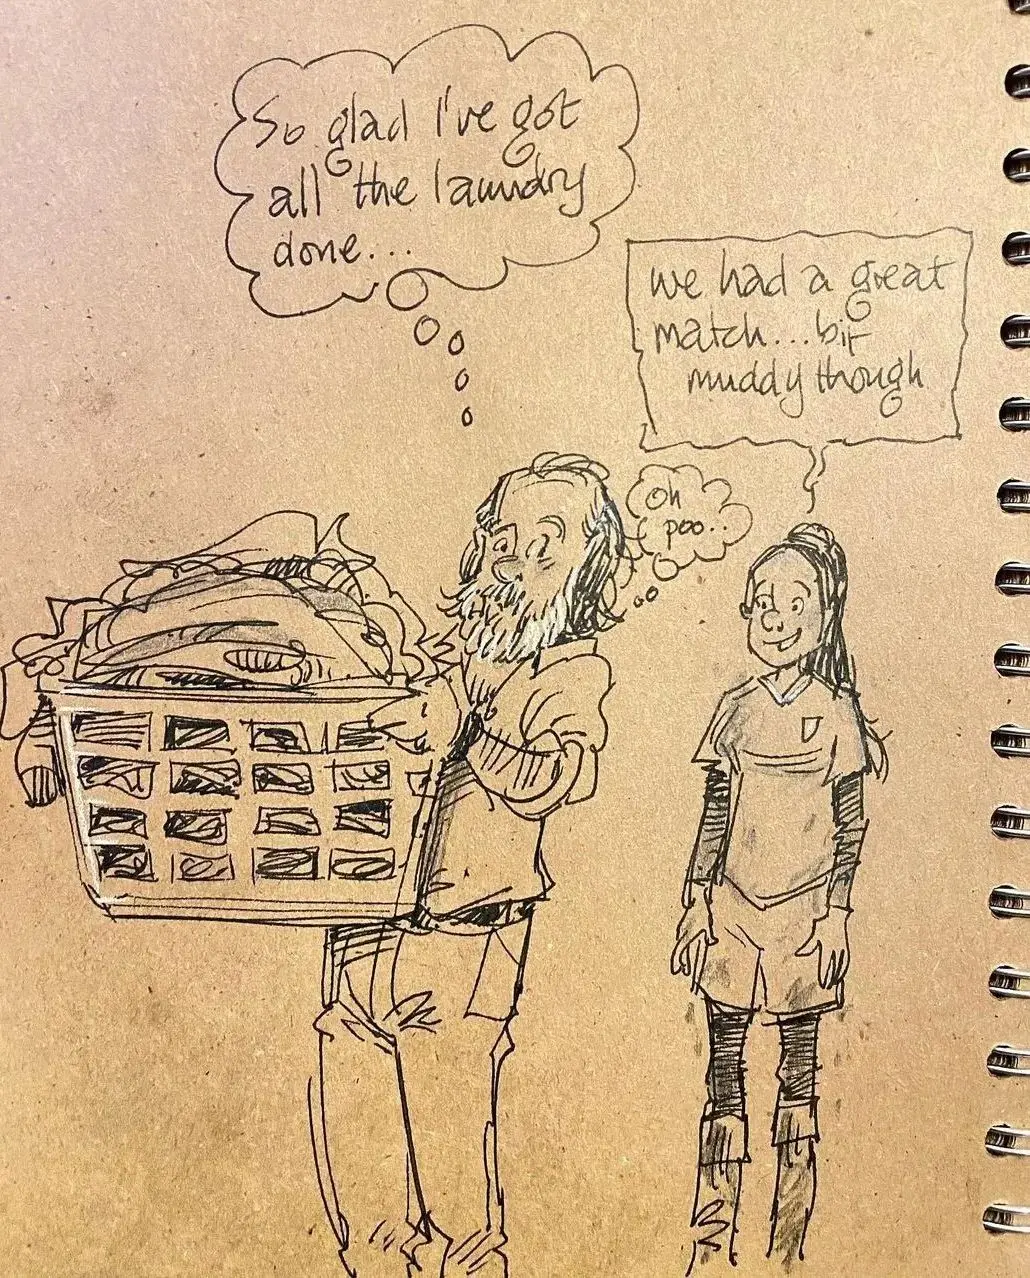 So glad I've got
all the laundry
done...
we had a great
match...bit
muddy though
Oh
poo..